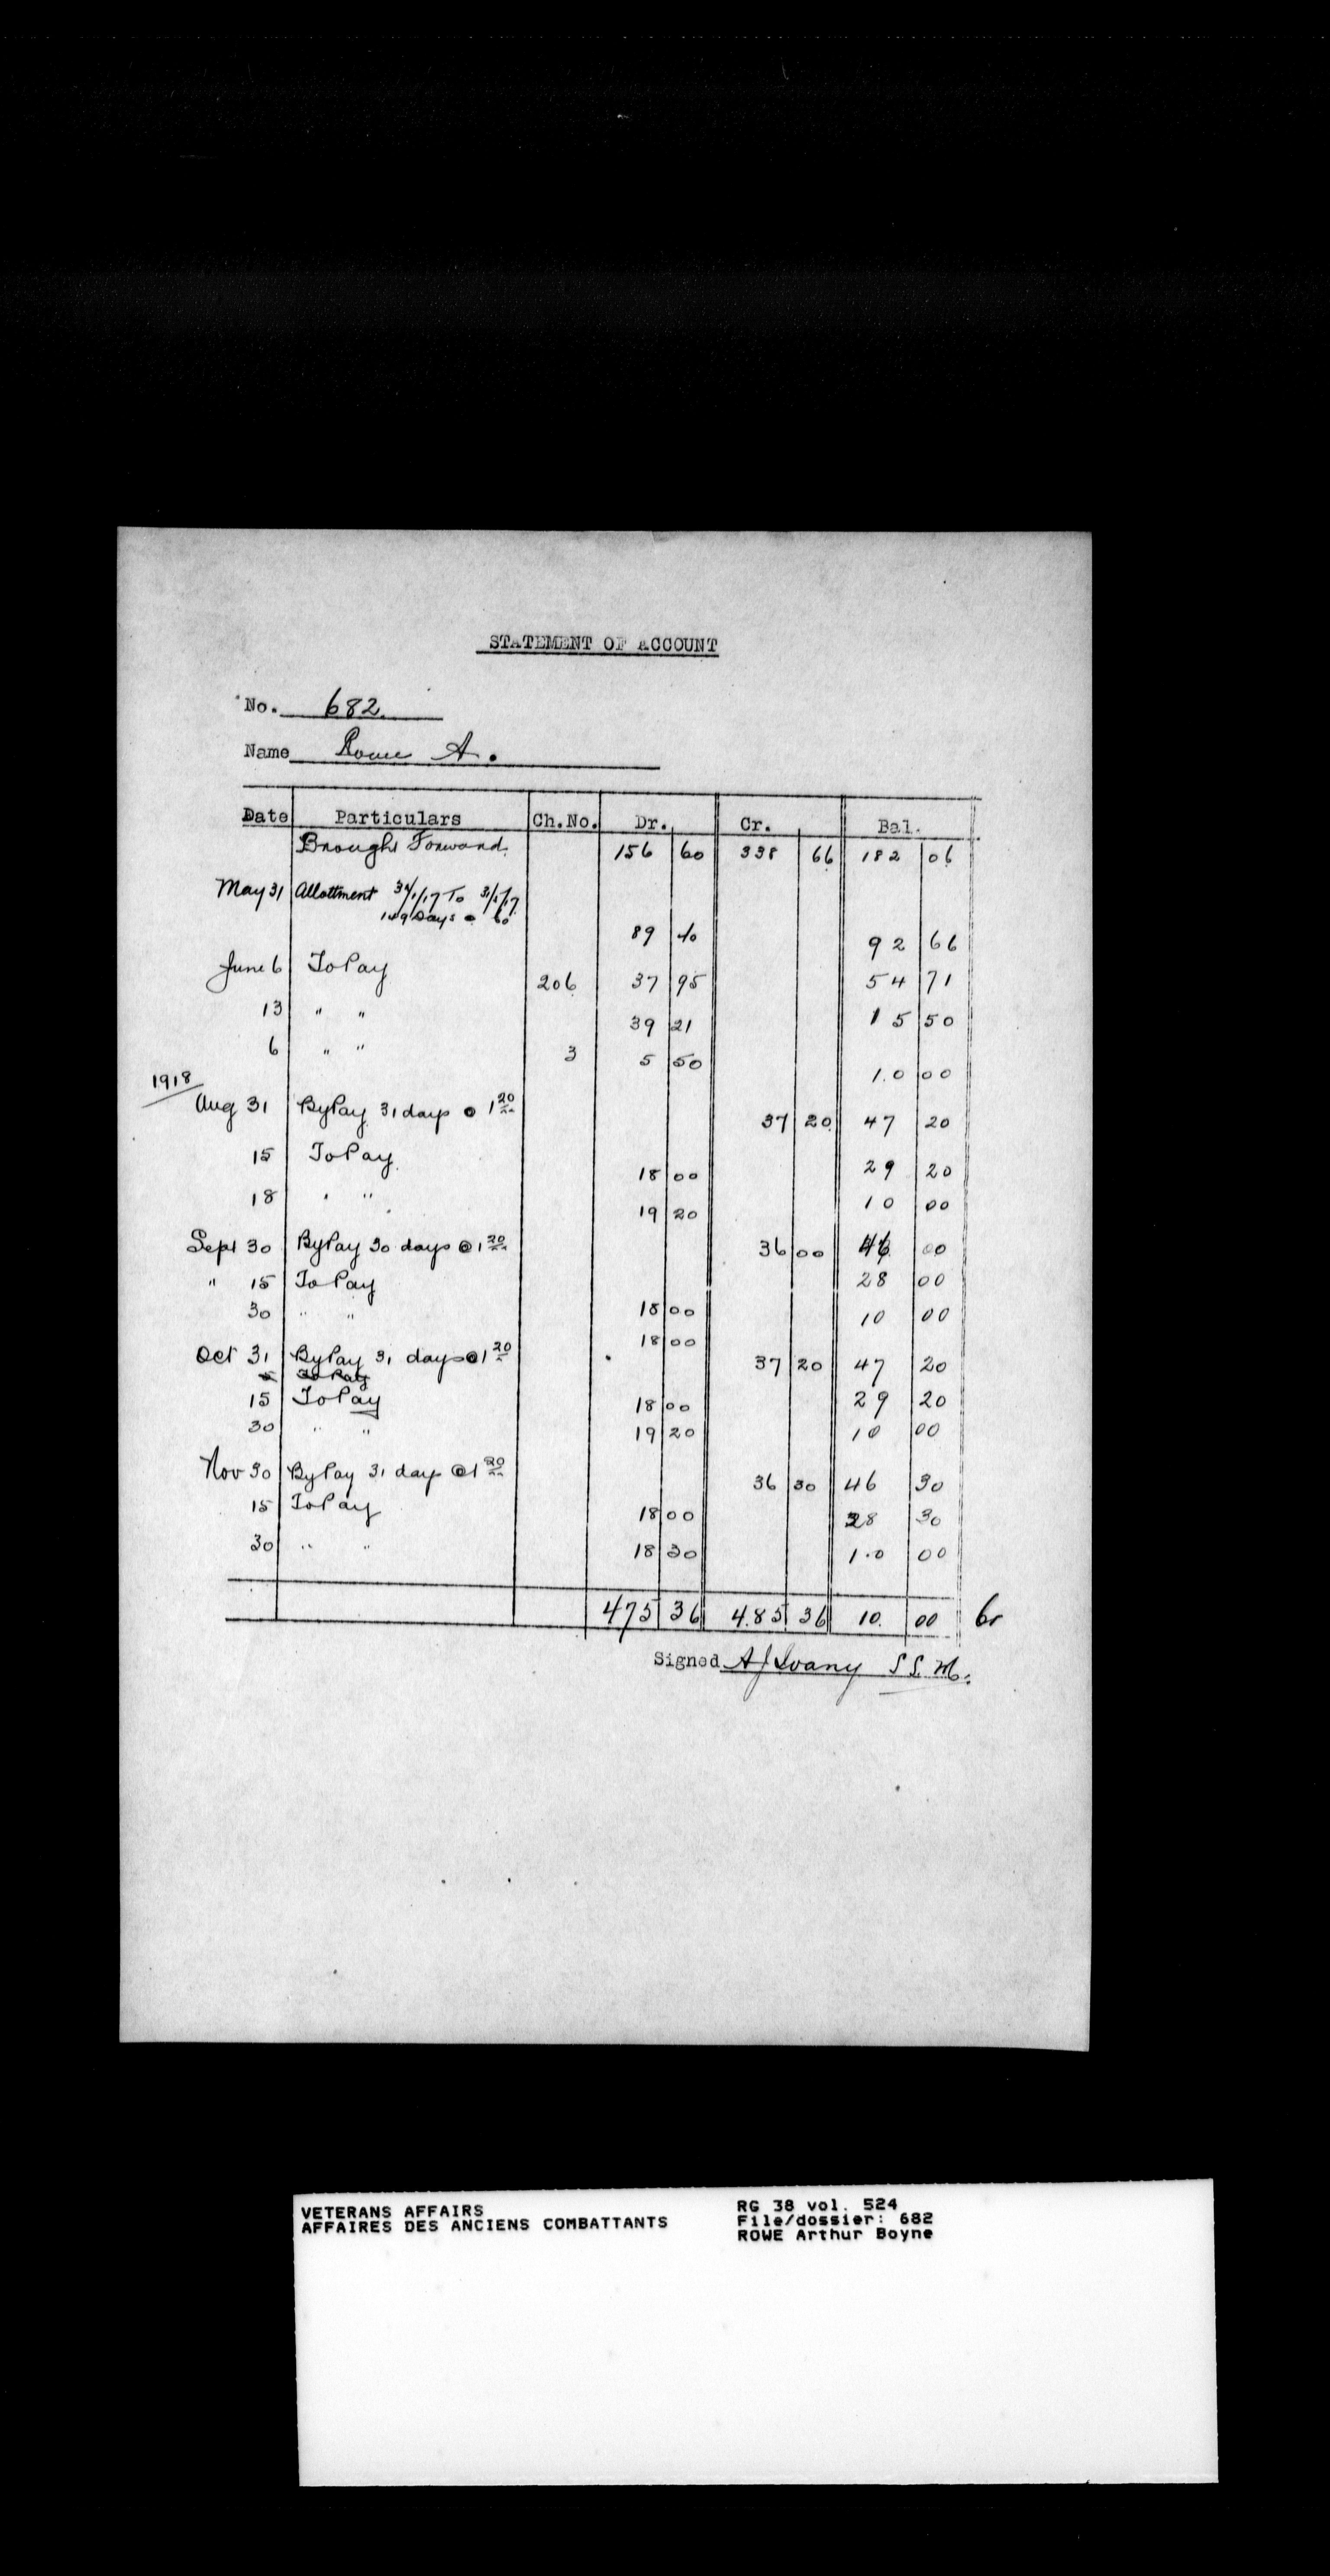 STATEMENT OF ACCOUNT
No. 682
Name Rowe A.
Date Particulars Ch.No. Dr. Cr. Bal.
Brought Forward 156 60 338 66 182 06
May 31 Allotment To 31/5/17
149 Days @ 60 89 40 92 66
June 6 To Pay 206 37 95 54 71
13 " " 39 21 15 50
6 " " 3 5 50 10 00
1918
Aug 31 By Pay 31 days @ 1 20 37 20 47 20
15 To Pay 18 00 29 20
18 " " 19 20 10 00
Sept 30 By Pay 30 days @ 1 20 36 00 46 00
" 15 To Pay 18 00 28 00
30 " " 18 00 10 00
Oct 31 By Pay 31 days @ 1 20 37 20 47 20
To Pay
15 To Pay 18 00 29 20
30 " " 19 20 10 00
Nov 30 By Pay 31 day @ 1 20 36 30 46 30
15 To Pay 18 00 28 30
30 " " 18 30 10 00
475 36 485 36 10 00 Cr
Signed A J Ivany S.S.M.
VETERANS AFFAIRS
AFFAIRES DES ANCIENS COMBATTANTS
RG 38 vol. 524
File/dossier: 682
ROWE Arthur Boyne